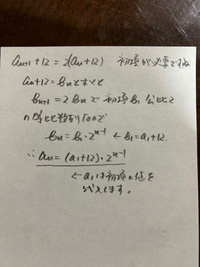 aₙ₊₁+12=2(aₙ+12) 初項が必要ですね
aₙ+12=bₙとおくと
bₙ₊₁=2bₙで初項b₁公比2
の等比数列なので
bₙ=b₁・2ⁿ⁻¹ ←b₁=a₁+12
∴aₙ=(a₁+12)・2ⁿ⁻¹
←a₁は初項の値を
代入します。